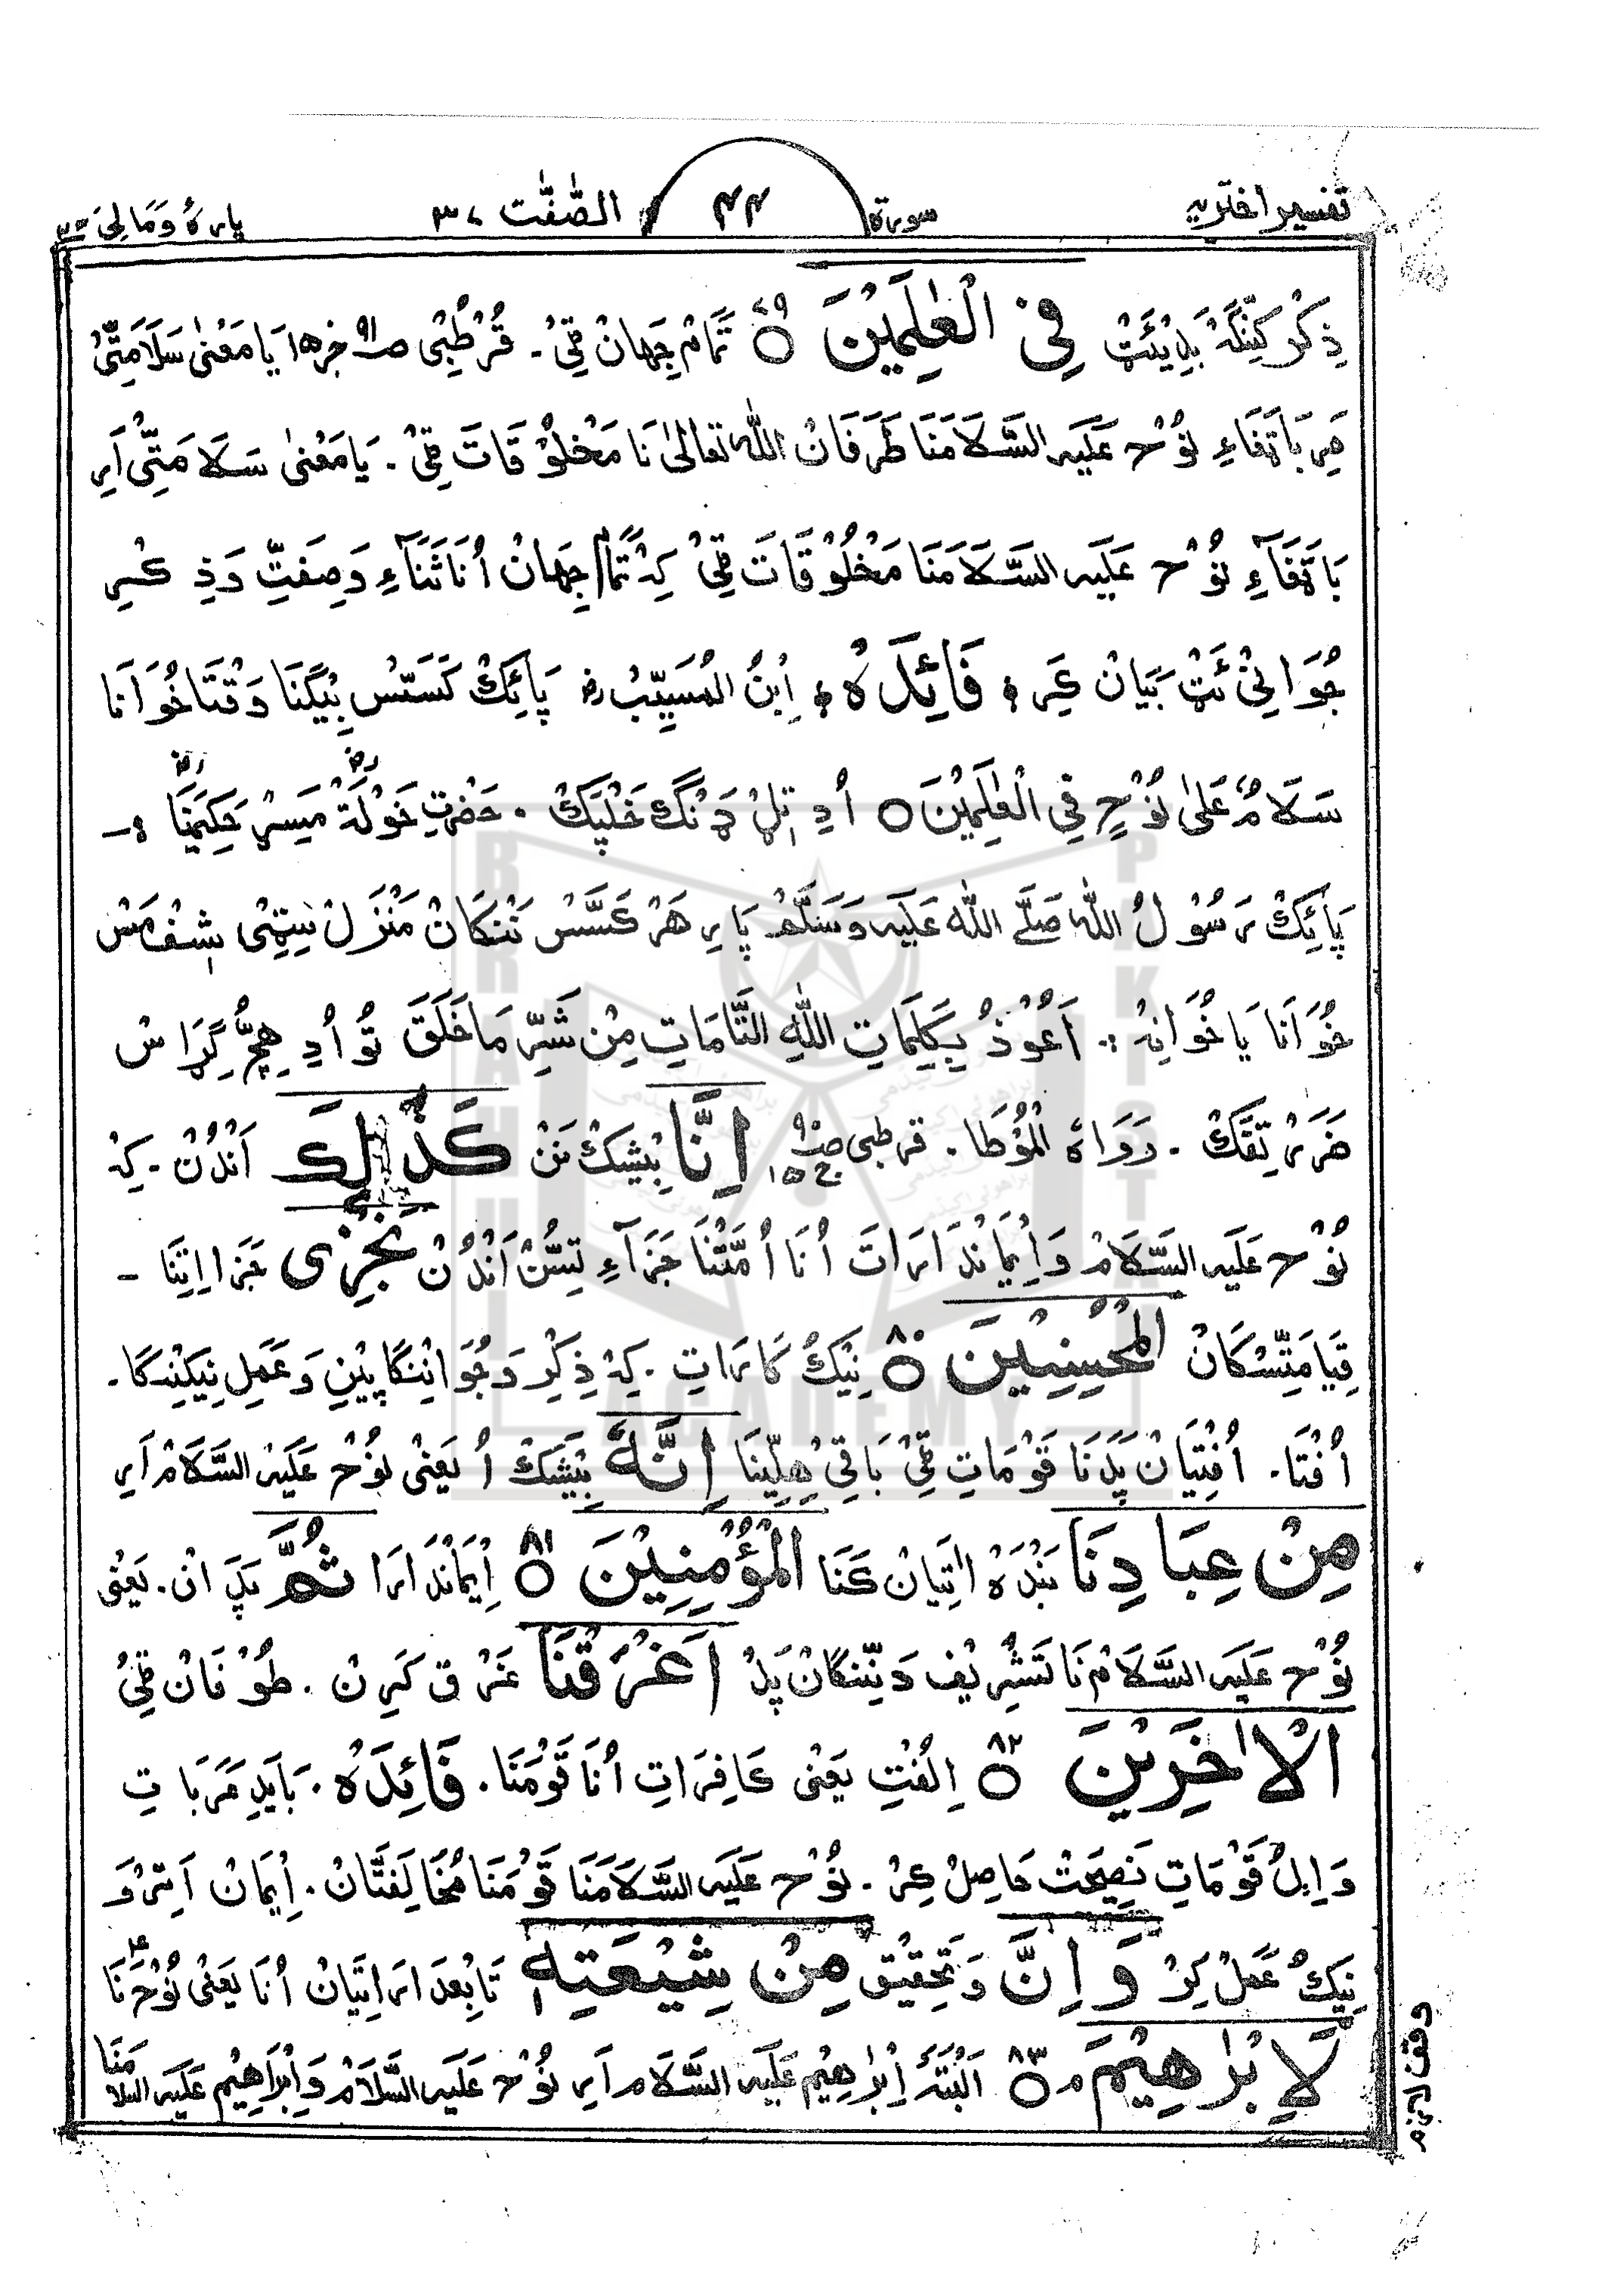 تفسیر اختریہ سورة ۴۴ الصّٰفّٰت ۳۷ پارہ وَمَالِیَ ۲۳
ذِکْر کَنِنْگَہْ فِی الْعٰلَمِیْنَ ۷۹ تَمَامْ جِہَانْ قِیْ۔ قُرْطُبِی صـ۹۱ جز۱۵ یَا مَعْنیٰ سَلَامَتِیْ
نُوْح عَلَیہ السَّلَامَنَا طَرَفَانْ اللّٰہ تعالیٰ نَا مَخْلُوْقَاتَ قِیْ۔ یَا مَعْنیٰ سَلَامَتِی اَرِ
بَاتَفَآءِ نُوْح عَلَیہ السَّلَامَنَا مَخْلُوْقَاتَ قِیْ کِہْ تَمَام جِہَانْ اُنَا ثَنَاءِ وَصِفَتِ وَذِکْرِ
جُوَانِیْ ئَتْ بَیَانْ کَرِ؛ فَائِدَہْ؛ اِبْنُ الْمُسَیِّبْ رض پَائِکْ کَسَسْ بِیْگَنَا وَقْتَا خُوَانَا
سَلَامٌ عَلیٰ نُوْحٍ فِی الْعٰلَمِیْنَ ○ اُدِ دَنْگَ خَلْپَکْ۔ حَضْرَتِ خَوْلَۃْ رض مَسِرْ حَکِیْمَنَا رض :۔
پَائِکْ رَسُوْلُ اللّٰہ صَلَّے اللّٰہ عَلَیہ وَسَلَّمْ پَارِ ہَرْ کَسَسْ نَنْکَانْ مَنْزِلْ شِفْ مَسْ
خُوَانَا یَا خُوَانِہْ :۔ اَعُوْذُ بِکَلِمَاتِ اللّٰہِ التَّامَّاتِ مِنْ شَرِّ مَا خَلَقَ تُو اُدِ ہِچْ گِرَاسْ
ضَرَرْ تِفَّکْ۔ رَوَاہُ الْمُؤَطَا۔ قرطبی صـ۹۰ ج۱۵ اِنَّا بِیْشَکْ نَنْ کَذٰلِکَ اَنْدُنْ۔ کِہْ
نُوْح عَلَیہ السَّلَامْ وَاِیْمَانْدَارَاتَ اُنَا اُمَّتْنَا جَزَآءِ تِسُّنْ اَنْدُنْ نَجْزِی جَزَا اِتِنَا۔
قِیَامَتِسْکَانْ الْمُحْسِنِیْنَ ۸۰ نِیْکُ کَارَاتِ۔ کِہْ ذِکْرِ وَجُوَانِنْگَا پِیْنِ وَعَمَلِ نِیکِنْکَا۔
اُفْتَا۔ اُفْتِیَانْ پَدَنَا قَوْمَاتِ قِیْ بَاقِیْ ہِلِّیْنَا اِنَّہٗ بِیْشَکْ اُ یَعْنِیْ نُوْح عَلَیہْ السَّلَامْ اَرِ
مِنْ عِبَادِنَا بَنْدَہْ اَتِیَانْ کَنَا الْمُؤْمِنِیْنَ ۸۱ اِیْمَانْدَارَا ثُمَّ پَدَانْ۔ یَعْنِیْ
نُوْح عَلَیہ السَّلَامْنَا تَشْرِیْف دَنِّنْگَانْ پَدْ اَغْرَقْنَا غَرْق کَرِنْ۔ طُوْفَانْ قِیْ
الْاٰخَرِیْنَ ۸۲ اِلْفْتِ یَعْنِی کَافِرَاتِ اُنَا قَوْمَنَا۔ فَائِدَہْ۔ بَایَدِ عَرَبَاتِ
وَاِیْلُ قَوْمَاتِ نَصِیْحَتْ حَاصِلْ کِرْ۔ نُوْح عَلَیہ السَّلَامَنَا قَوْمَنَا مُخَالَفَتَّانْ۔ اِیْمَانْ اَتِرْ وَ
نِیْکُ عَمَلْ کِرْ وَاِنَّ وَتَحْقِیْق مِنْ شِیْعَتِہٖ تَابِعْدَارَاتِیَانْ اُنَا یَعْنِیْ نُوْحَ؏نَا
لَاِبْرٰھِیْمَ م ۸۳ اَلْبَتَّہ اِبْرٰھِیْم عَلَیہ السَّلَام اَرِ نُوْح عَلَیہ السَّلَامْ وَاِبْرَاھِیْم عَلَیہ السلامَنَا
وقف لازم
BRAHUI
ACADEMY